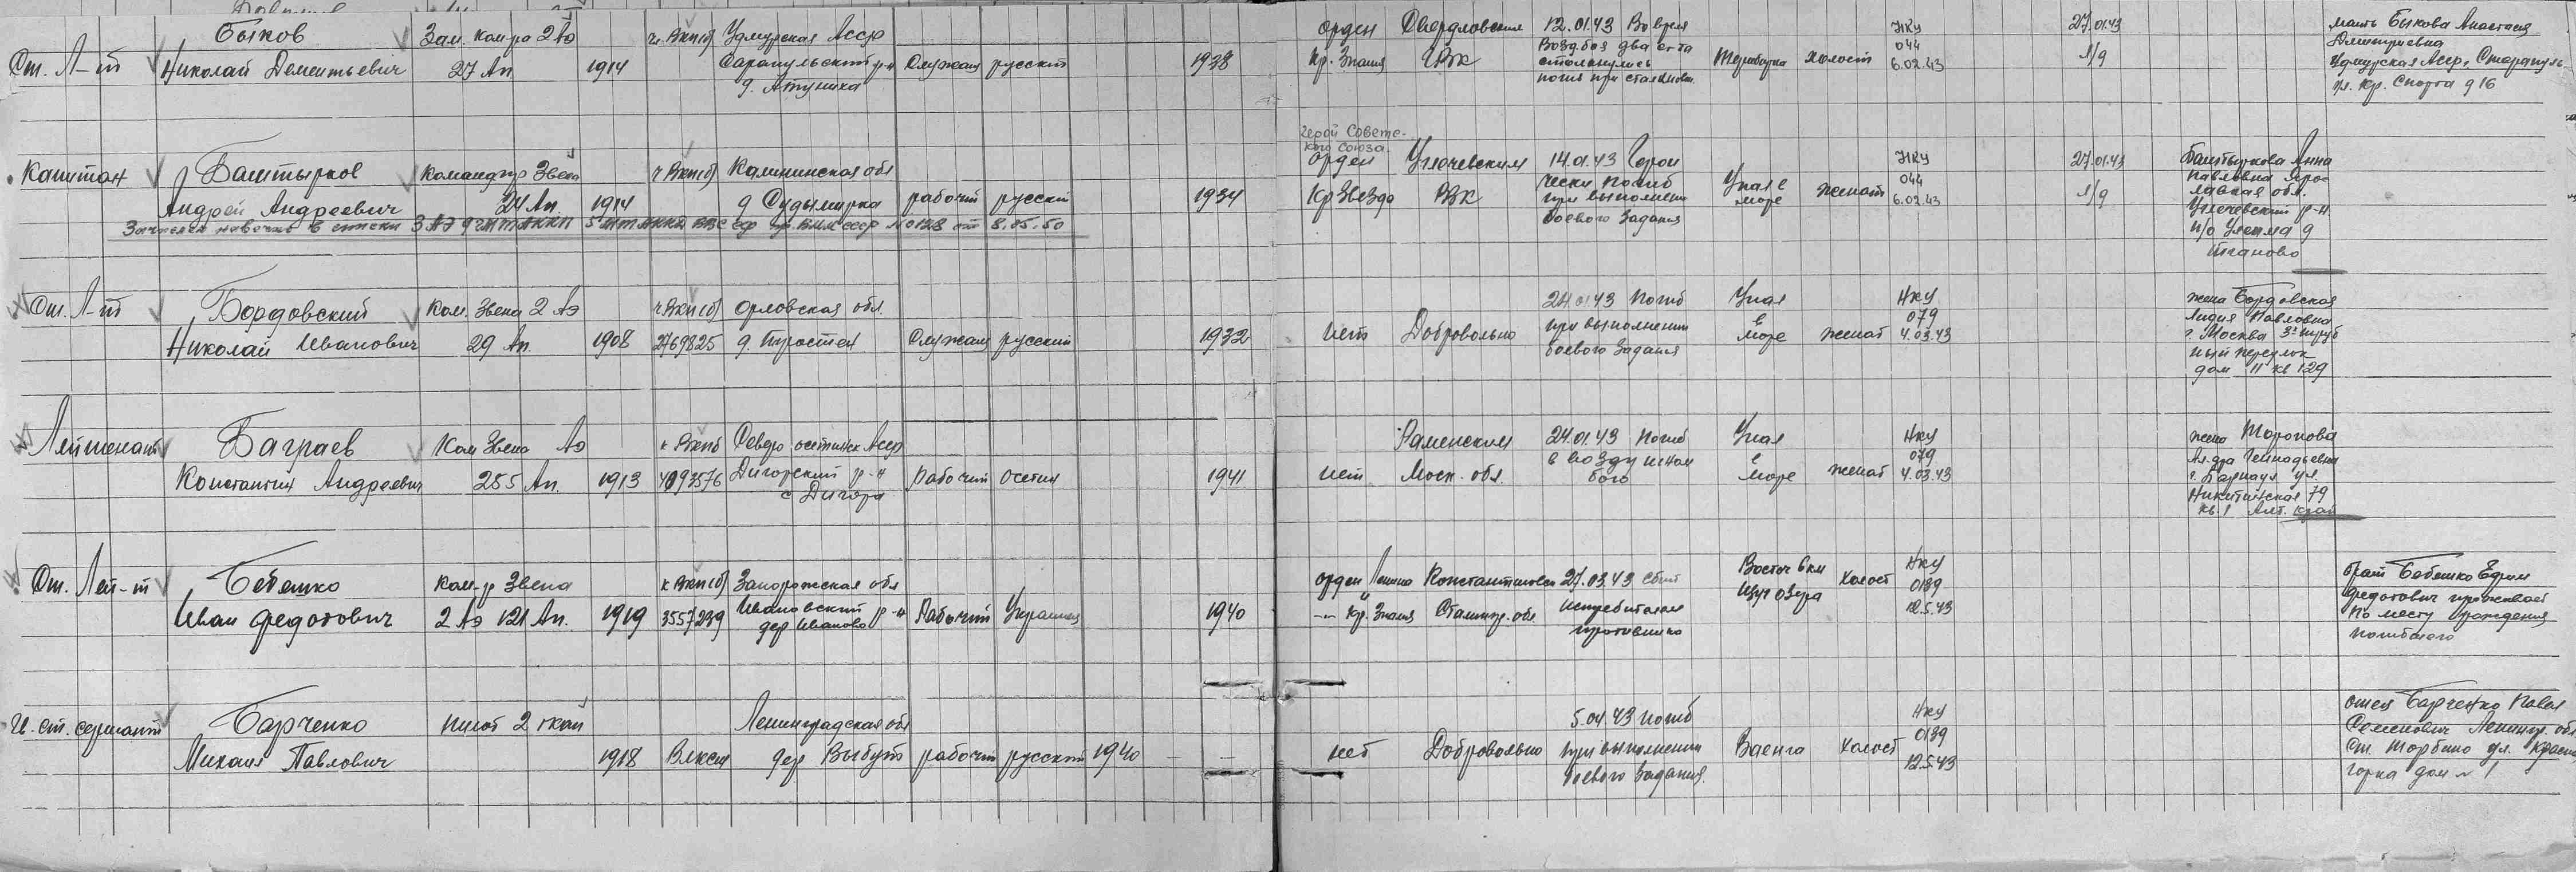 Быков Зам. ком-ра 2 Аэ чл. Вкп(б) Удмурская Асср орден Свердловским 12.01.43 Во время НКУ 27.01.43 мать Быкова Анастасия
Ст. Л-т Николай Дементьевич 27 Ап 1914 Сарапульский р-н Служащ русский 1938 Кр. Знамя РВК Возд. боя два с-та столкнулись холост 044 л/д Дмитриевна
погиб при 6.02.43 Удмурская Асср,
ул. Кр. Спорта д 16
Герой Советс-
кого Союза.
Капитан Баштырков Командир Звена ч Вкп(б) Калининская обл орден Угличевским 14.01.43 Герои НКУ 27.01.43 Баштыркова Анна
Андрей Андреевич 24 Ап. 1914 д Судимирка рабочий русский 1934 Кр Звезда РВК чески погиб Упал в море женат 044 л/д Павловна Яро-
при выполнении 6.02.43 лавская обл.
боевого задания Угличевский р-н
Зачислен навечно в списки 3 АЭ 9 гмтАККП 5 мтАККД ВВС сф пр. ВММ ссср №0128 от 8.05.50 п/о Улейма д
Ст. Л-т Бордовский Ком. Звена 2 Аэ ч Вкп(б) Орловская обл. 24.01.43 Погиб Упал НКУ жена Бордовская
Николай Иванович 29 Ап. 1908 2769825 Служащ русский 1932 нет Добровольно при выполнении в море женат 079 Лидия Павловна
боевого задания 4.03.43 г. Москва
ный переулок
дом 11 кв 129
Лейтенант Баграев Ком Звена Аэ к Вкпб Северо осетинск Асср Раменским 24.01.43 Погиб Упал НКУ жена Торопова
Константин Андреевич 255 Ап. 1913 Дигорский р-н Рабочий осетин 1941 нет Моск. обл. в воздушном в море женат 079 Ал-дра Генадьевна
с Дигора бою 4.03.43 г. Барнаул ул.
Никитинская 79
кв. 1 Алт. край
Ст. Лей-т Бебешко ком-р Звена к Вкп(б) Запорожская обл орден Ленина 27.03.43 Сбит Холост НКУ брат Бебешко Ефим
Иван Федотович 2 Аэ 121 Ап. 1919 3557239 Ивановский р-н Рабочий Украинец 1940 -"- Кр. Знамя Сталингр. обл истребителем 0139 Федотович проживает
дер Иваново противника 12.5.43 по месту рождения
погибшего
Гв. ст. сержант Барченко пилот 2 гкап Ленинградская обл 5.04.43 погиб НКУ отец Барченко Павел
Михаил Павлович 1918 Влксм дер Выбути рабочий русский 1940 — — нет Добровольно при выполнении Ваенга Холост 0139 Семенович Ленингр. обл
боевого задания. 12.5.43 Ст. Торбино ул. Красная
горка дом № 1